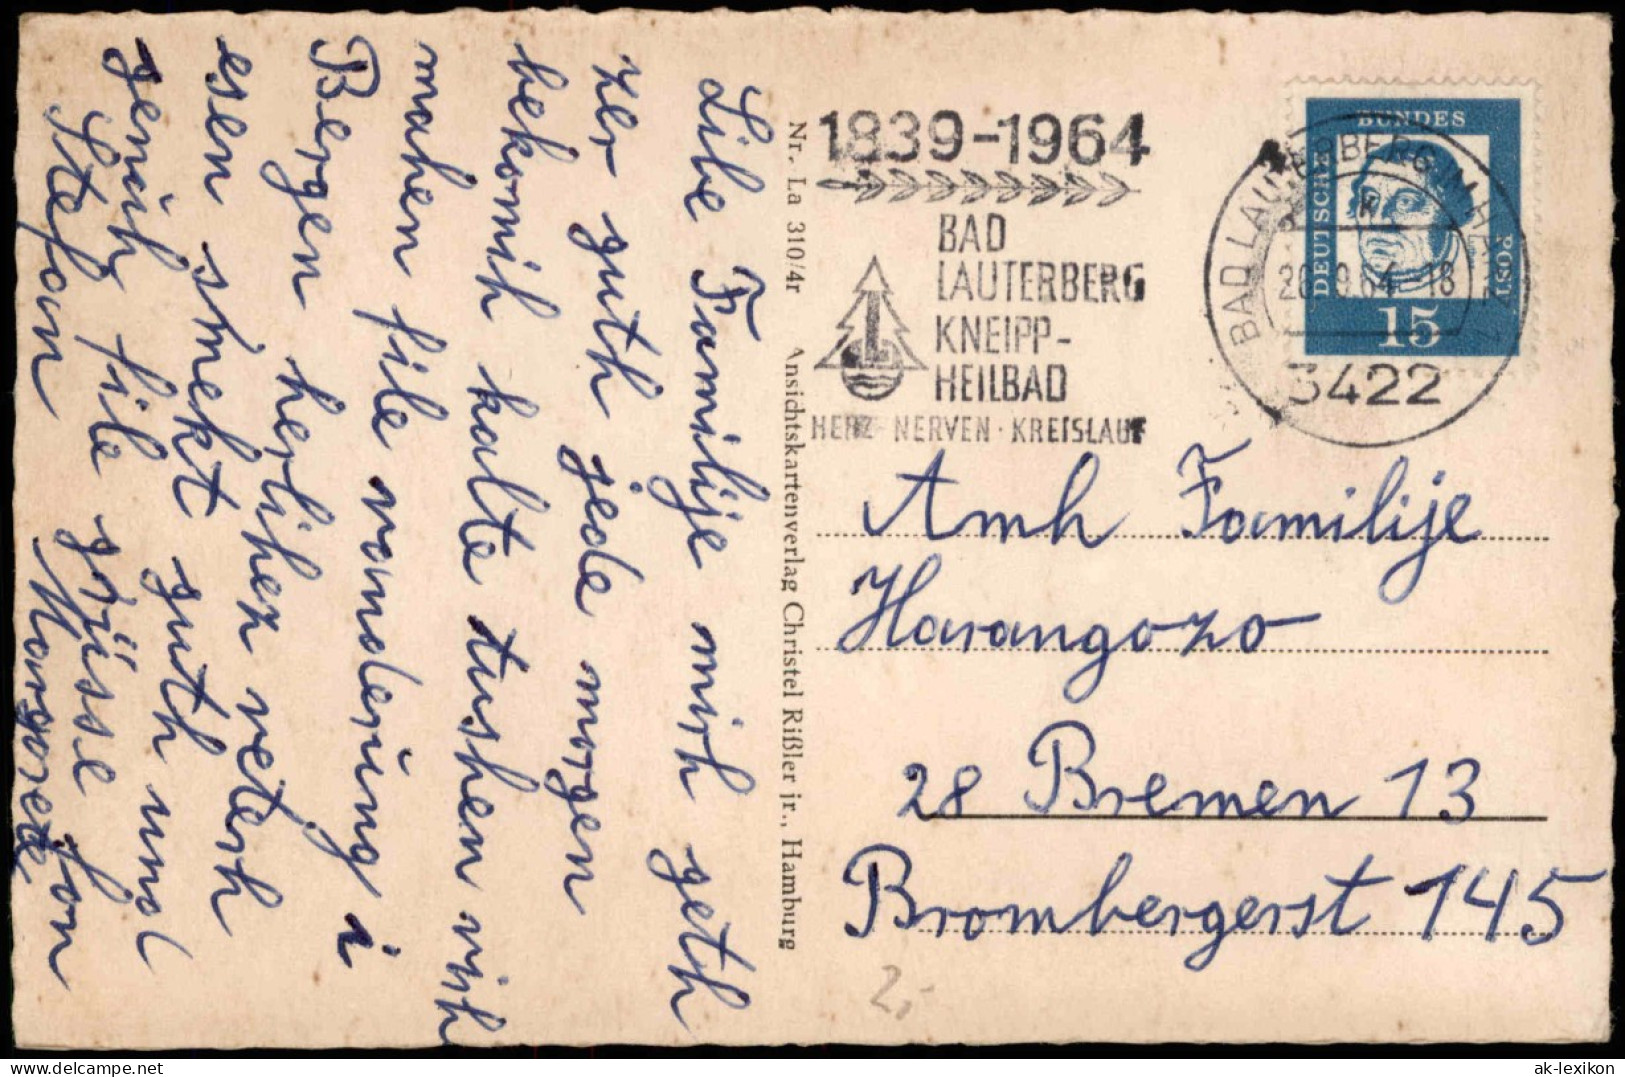 Libe Familije mirh geth
zer guth jede morgen
bekomih kalte tushen wih
mahen file vanderung i
Bergen herliher veterh
esen smekt guth und
genüh file grüsse fon
Stefan Margarete
Nr. La 310/4r Ansichtskartenverlag Christel Rißler jr., Hamburg
1839-1964
BAD
LAUTERBERG
KNEIPP-
HEILBAD
HERZ · NERVEN · KREISLAUF
BAD LAUTERBERG IM HARZ 1
20.-9.64.-18
3422
DEUTSCHE BUNDES POST
15
Amh Familije
Harangozo
28 Bremen 13
Brombergerst 145
2,-
ak-lexikon